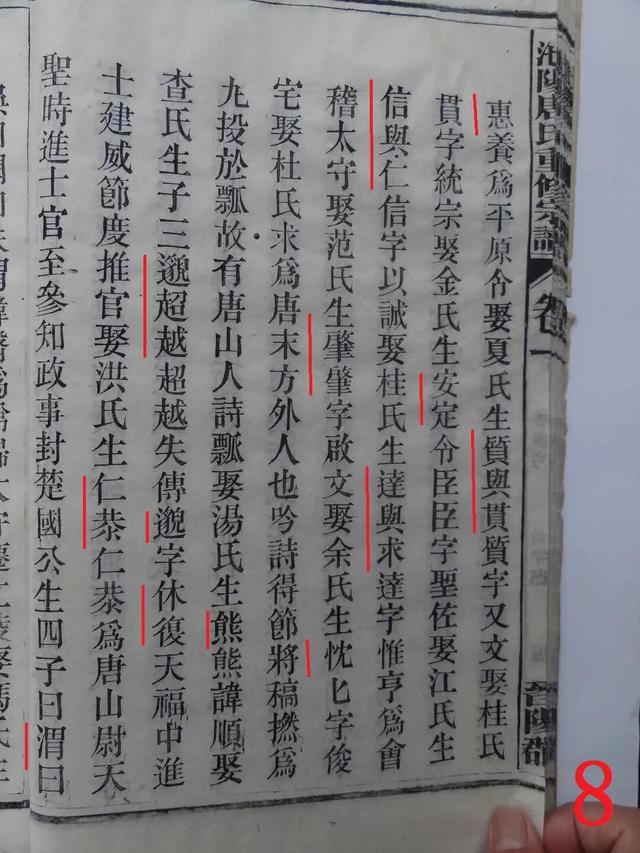 陽唐氏重修宗譜 卷一 晉陽
惠養爲平原令娶夏氏生質與貫質字又文娶桂氏
貫字統宗娶金氏生安定令臣臣字聖佐娶江氏生
信與仁信字以誠娶桂氏生達與求達字惟亨爲會
稽太守娶范氏生肇肇字啟文娶余氏生忱匕字俊
宅娶杜氏求爲唐末方外人也吟詩得節將稿撚爲
九投於瓢故有唐山人詩瓢娶湯氏生熊熊諱順娶
查氏生子三邈超越超越失傳邈字休復天福中進
士建威節度推官娶洪氏生仁恭仁恭爲唐山尉天
聖時進士官至參知政事封楚國公生四子曰渭曰
8